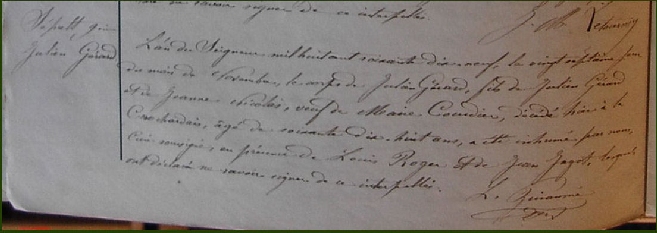 ne savoir signer de ce interpellés.
Sépult. Julien Gérard
L'an du Seigneur mil huit cent soixante dix neuf, le vingt septième jour
du mois de Novembre, le corps de Julien Gérard, fils de Julien Gérard
et de Jeanne Nicolas, veuf de Marie Coudier, décédé hier à la
âgé de soixante dix huit ans, a été inhumé par nous,
Curé soussigné, en présence de Louis Roger et de Jean Jagot, lesquels
ont déclaré ne savoir signer de ce interpellés.